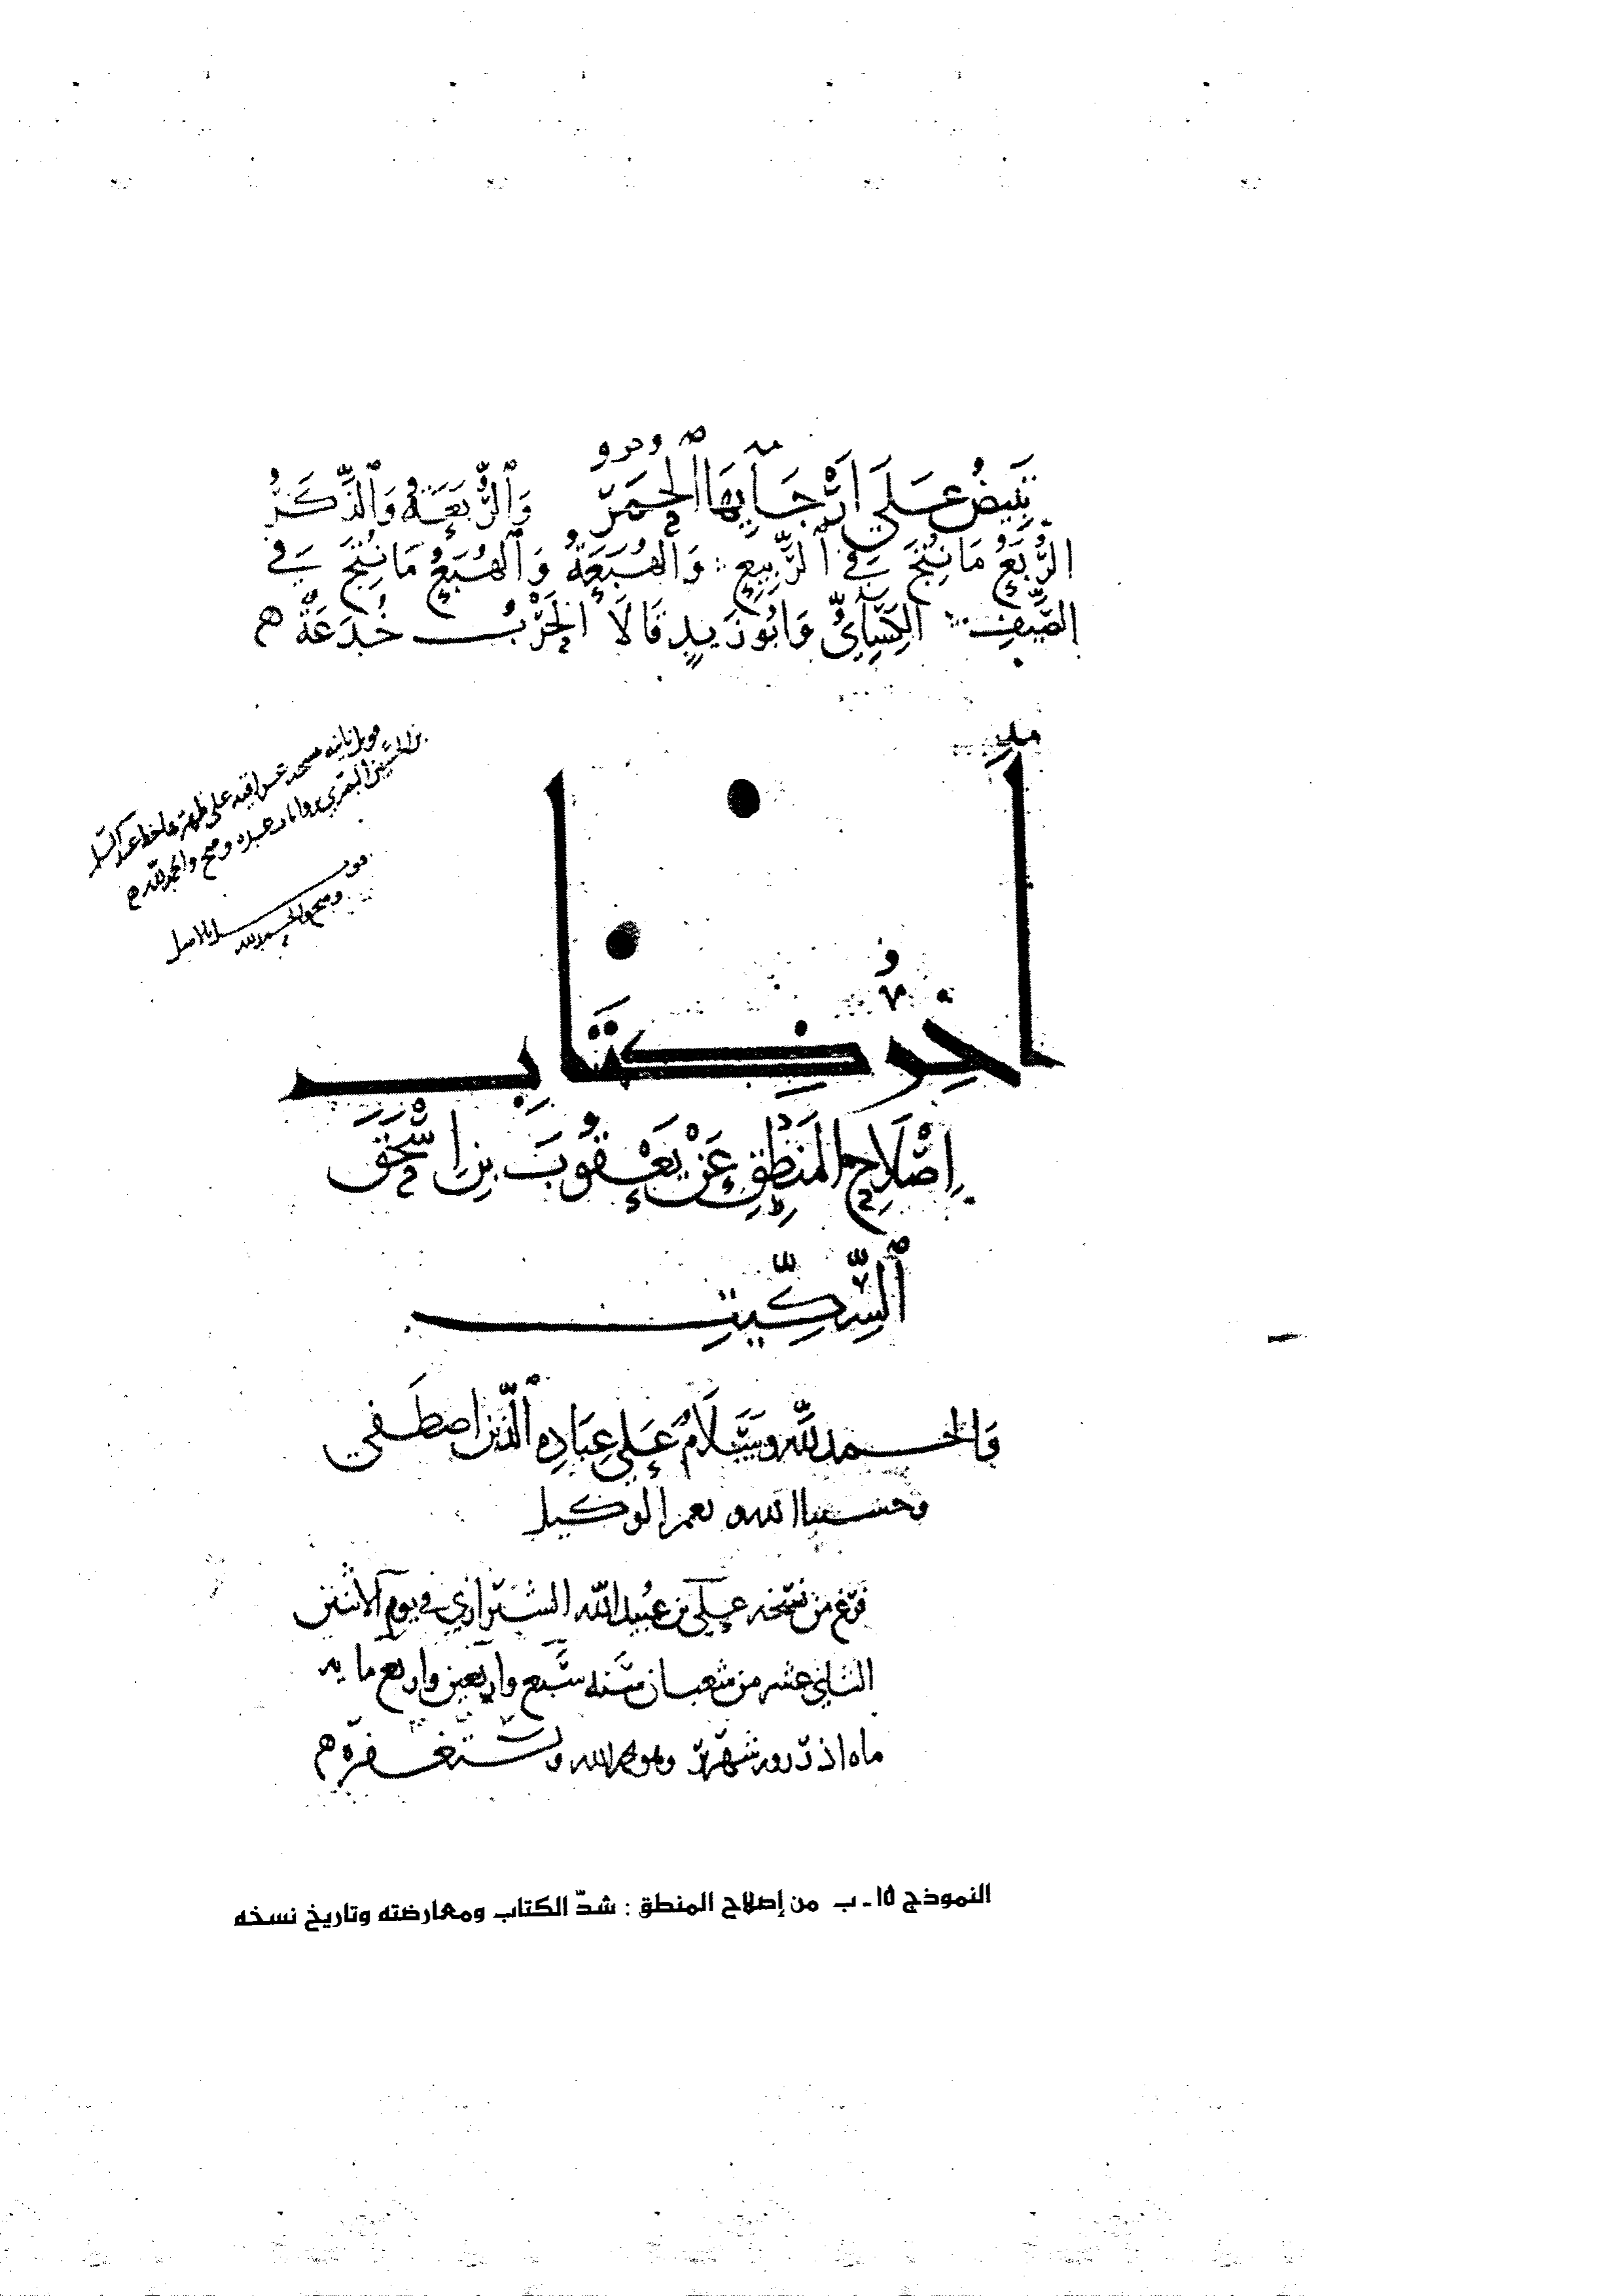 تَبِيضُ عَلَى أَرْجَائِهَا الْحُمَّرُ وَالرُّبَعَةُ وَالذَّكَرُ
الرُّبَعُ مَا نُتِجَ فِي الرَّبِيعِ وَالْهُبَعَةُ وَالْهُبَعُ مَا نُتِجَ فِي
الصَّيْفِ الْكِسَائِيُّ وَأَبُو زَيْدٍ قَالَا الْحَرْبُ خُدَعَةٌ ه
آخِرُ كِتَابِ
إِصْلَاحِ الْمَنْطِقِ عَنْ يَعْقُوبَ بْنِ إِسْحَقَ
السِّكِّيتِ
وَالحمد لله وسَلَامٌ عَلَى عِبَادِهِ الَّذين اصطَفى
وحسبنا الله ونعم الوكيل
فرغ من نسخه علي بن عبيد الله الشيرازي في يوم الاثنين
الثاني عشر من شعبان سنه سبع واربعين واربع مايه
ماه اذر روز شهرير وهو يحمد الله ويستغفره ه
ومح والحمد لله ه
بالاصل
وصح والحمد لله
النموذج ١٥ ـ ب من إصلاح المنطق : شدّ الكتاب ومعارضته وتاريخ نسخه